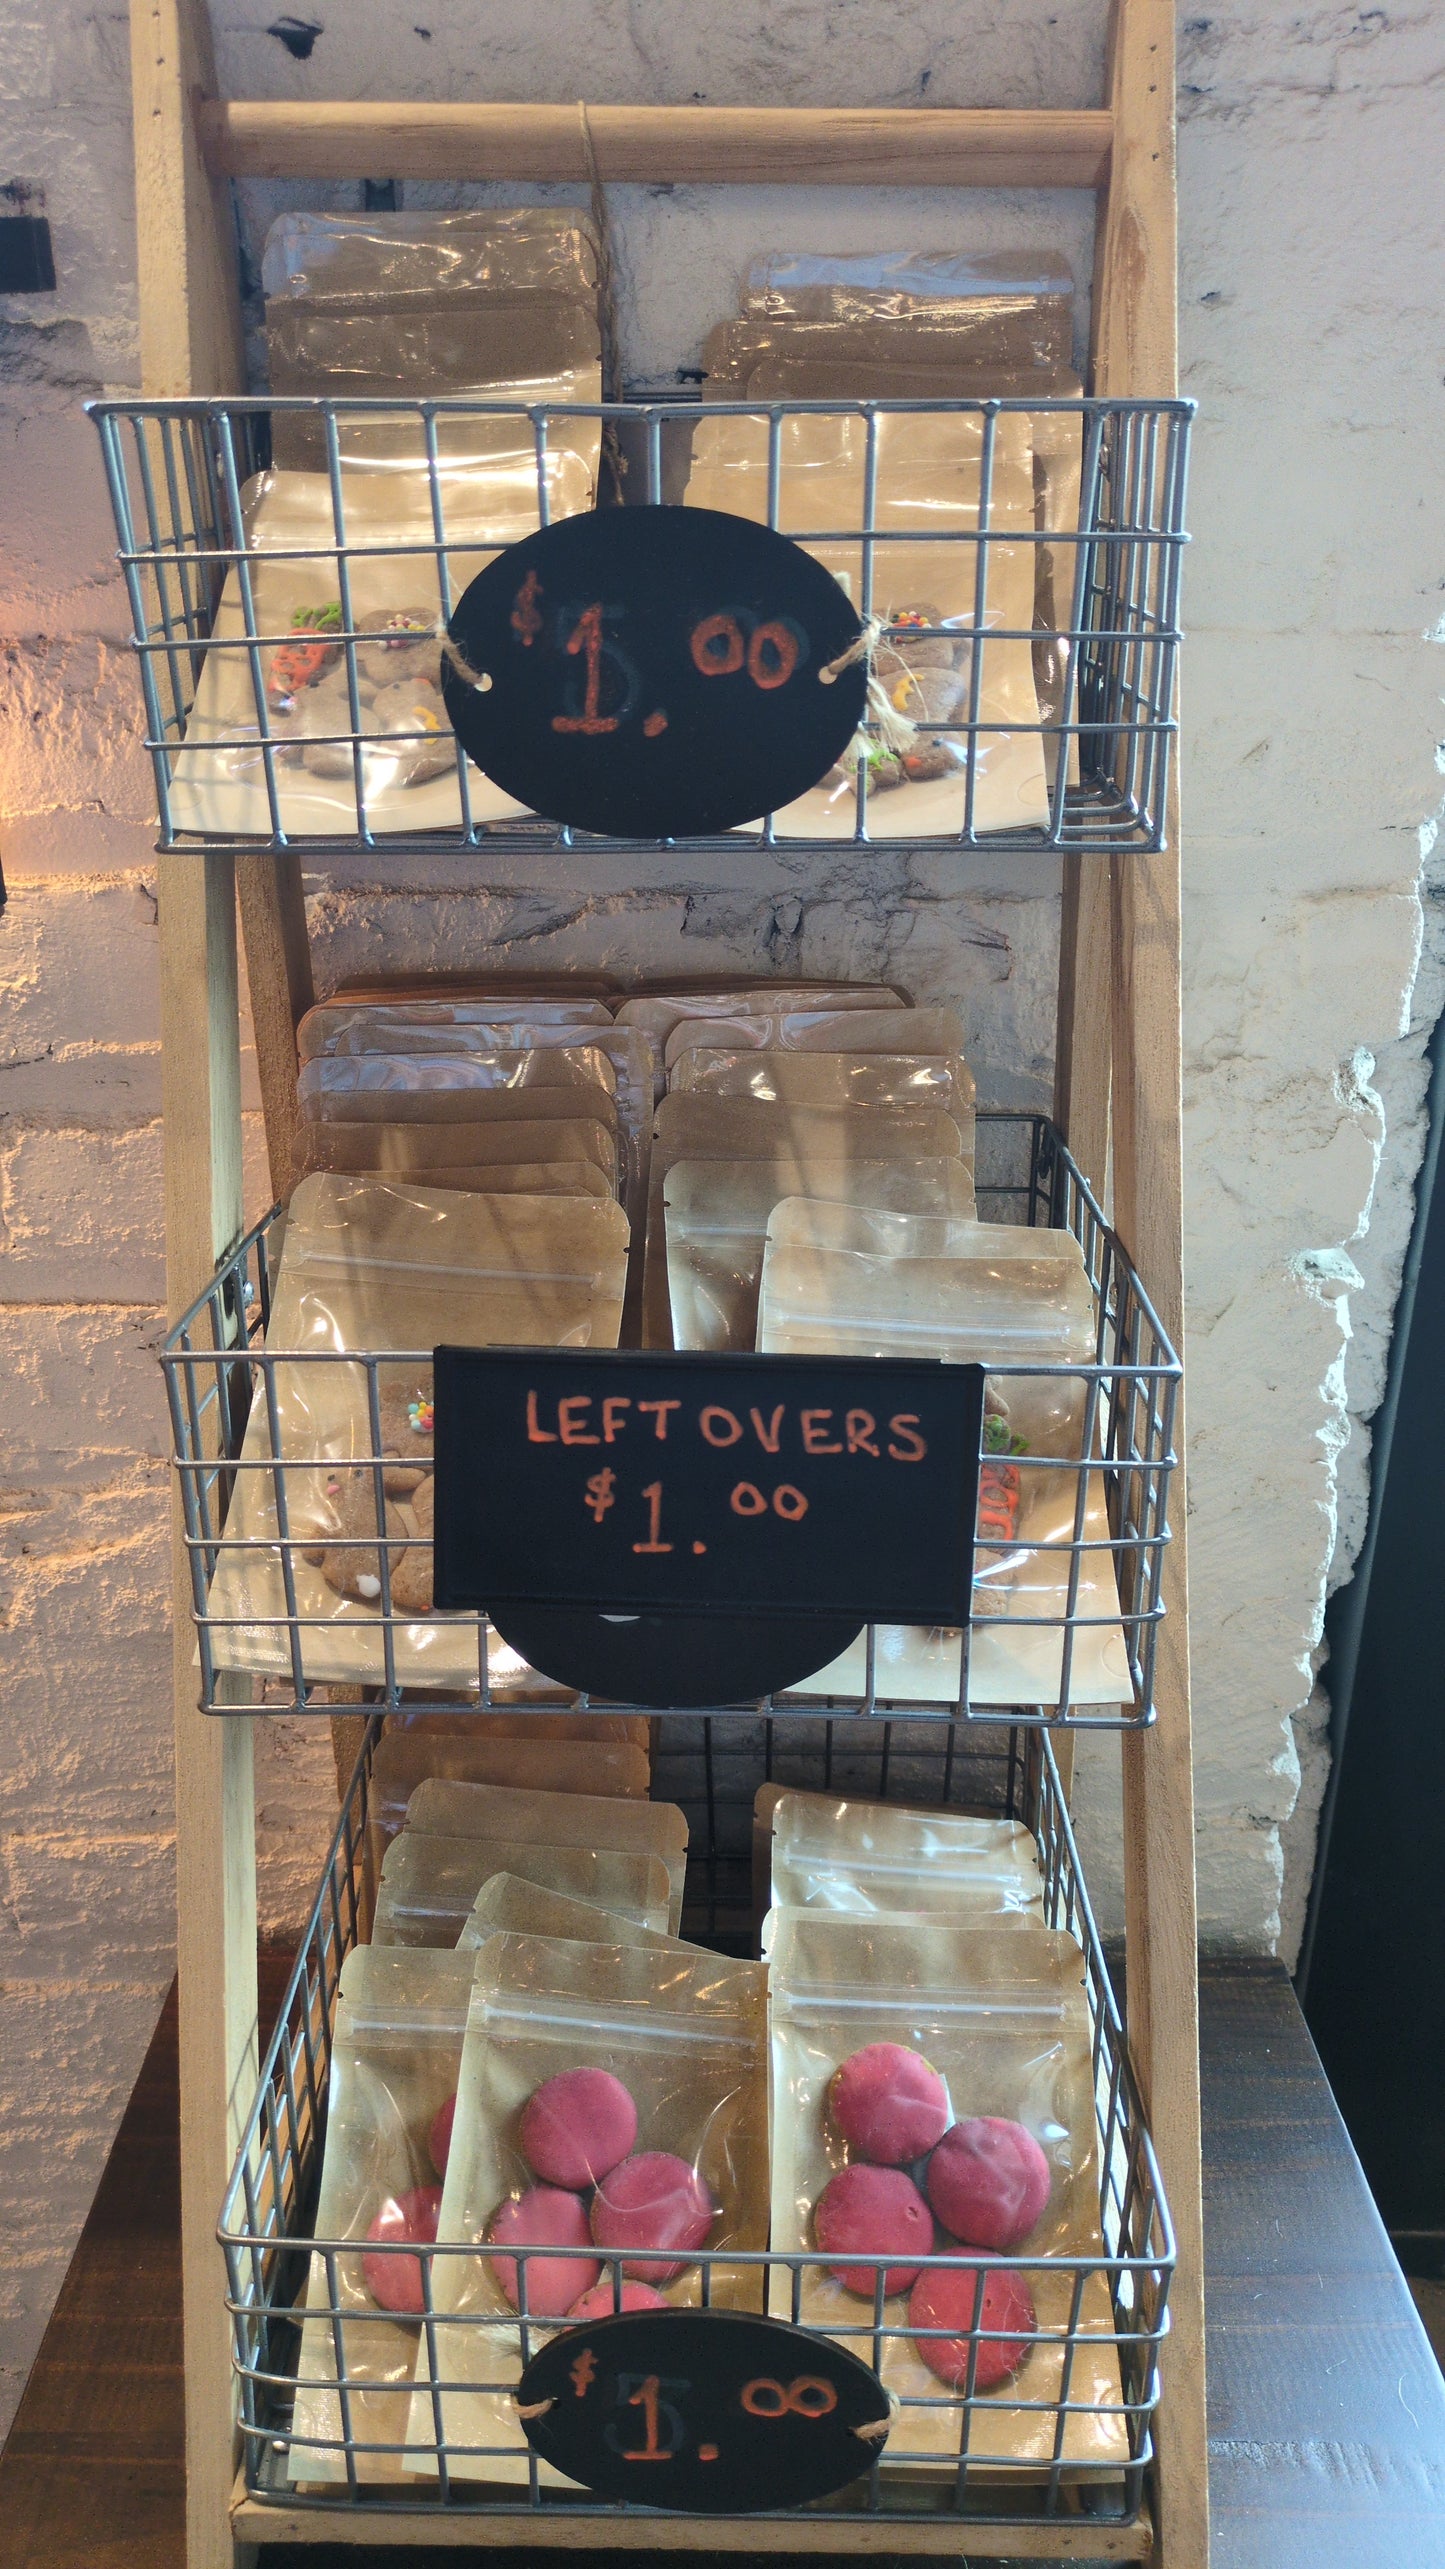 $1.00
LEFTOVERS
$1.00
$1.00